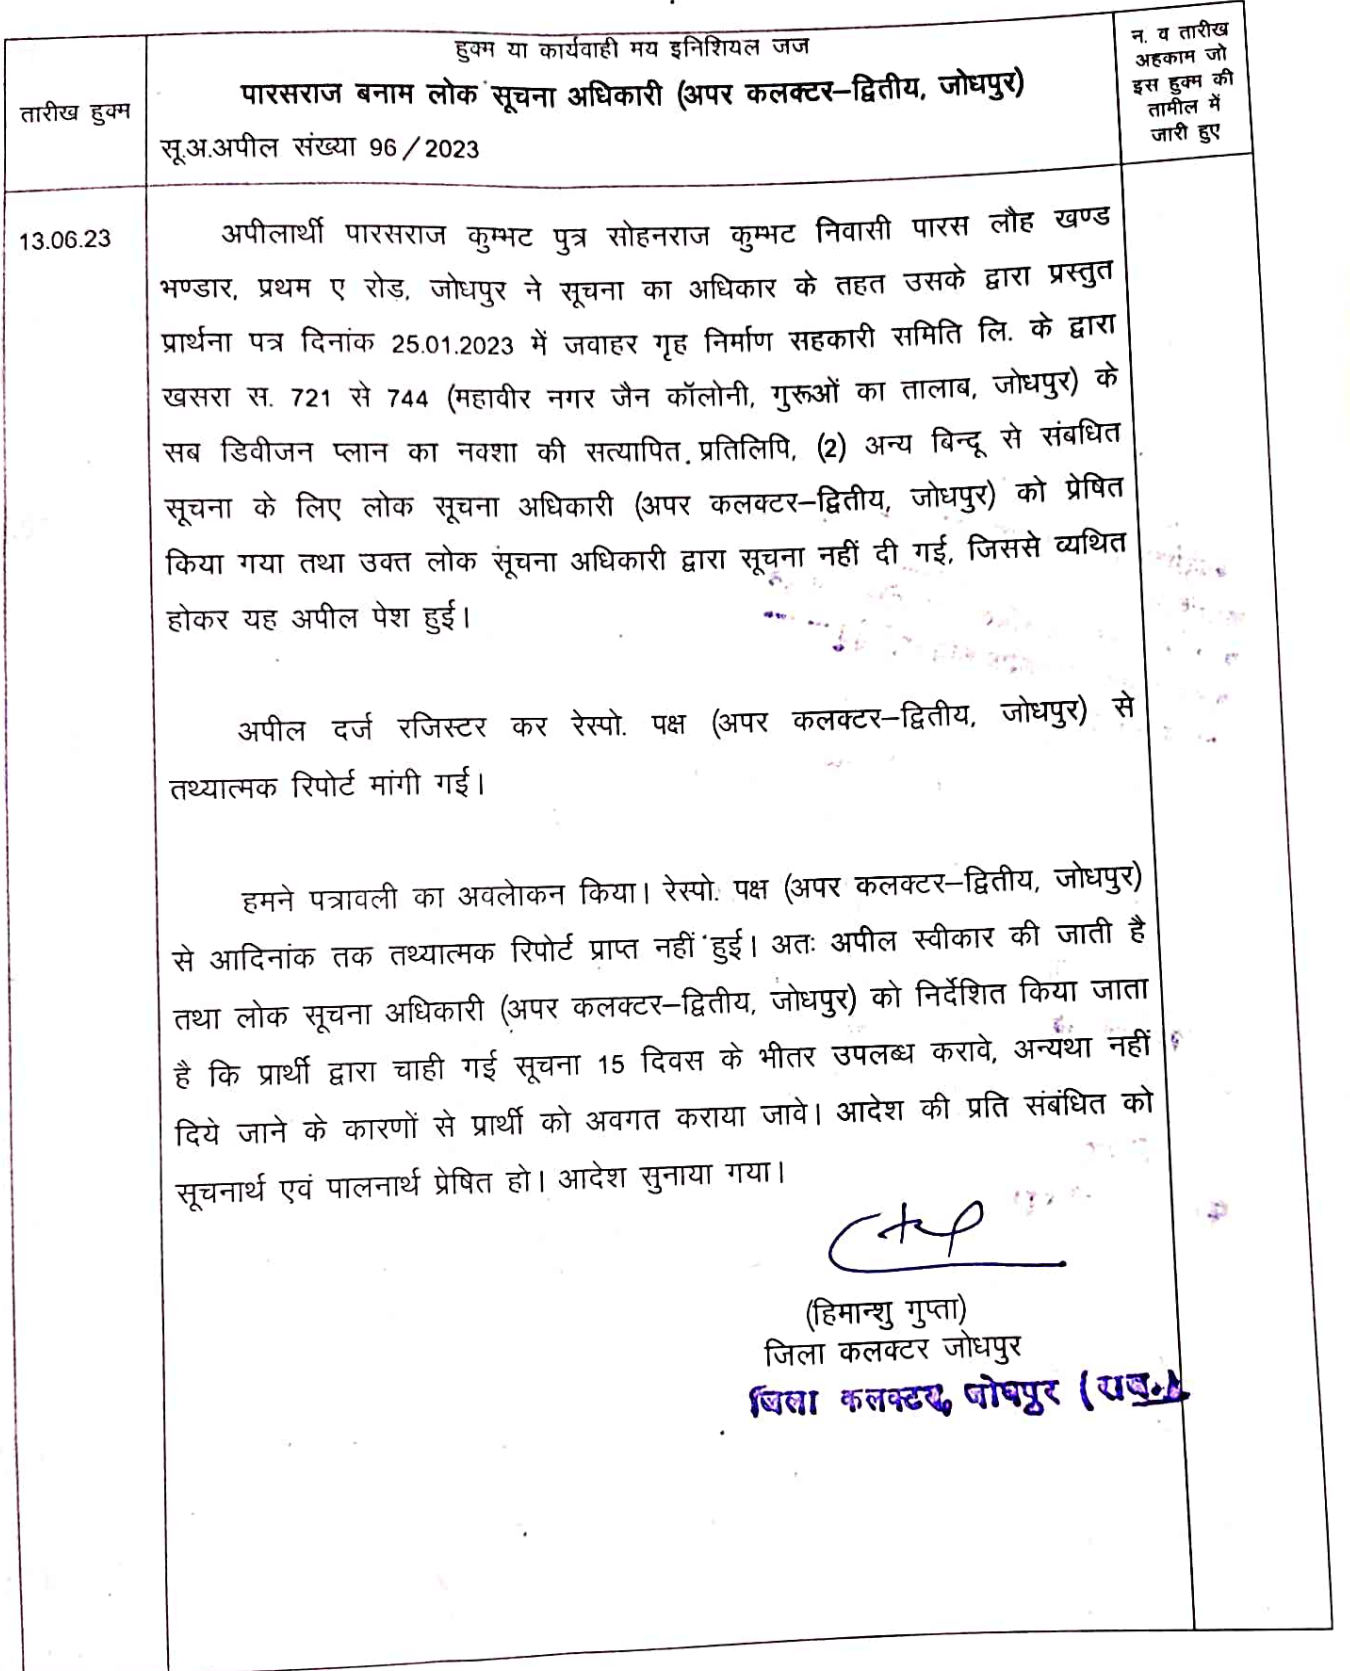 हुक्म या कार्यवाही मय इनिशियल जज
पारसराज बनाम लोक सूचना अधिकारी (अपर कलक्टर–द्वितीय, जोधपुर)
सू.अ.अपील संख्या 96/2023
तारीख हुक्म
न. व तारीख
अहकाम जो
इस हुक्म की
तामील में
जारी हुए
13.06.23
अपीलार्थी पारसराज कुम्भट पुत्र सोहनराज कुम्भट निवासी पारस लौह खण्ड
भण्डार, प्रथम ए रोड़, जोधपुर ने सूचना का अधिकार के तहत उसके द्वारा प्रस्तुत
प्रार्थना पत्र दिनांक 25.01.2023 में जवाहर गृह निर्माण सहकारी समिति लि. के द्वारा
खसरा स. 721 से 744 (महावीर नगर जैन कॉलोनी, गुरूओं का तालाब, जोधपुर) के
सब डिवीजन प्लान का नक्शा की सत्यापित प्रतिलिपि, (2) अन्य बिन्दू से संबधित
सूचना के लिए लोक सूचना अधिकारी (अपर कलक्टर–द्वितीय, जोधपुर) को प्रेषित
किया गया तथा उक्त लोक सूचना अधिकारी द्वारा सूचना नहीं दी गई, जिससे व्यथित
होकर यह अपील पेश हुई।
अपील दर्ज रजिस्टर कर रेस्पो. पक्ष (अपर कलक्टर–द्वितीय, जोधपुर) से
तथ्यात्मक रिपोर्ट मांगी गई।
हमने पत्रावली का अवलोकन किया। रेस्पो. पक्ष (अपर कलक्टर–द्वितीय, जोधपुर)
से आदिनांक तक तथ्यात्मक रिपोर्ट प्राप्त नहीं हुई। अतः अपील स्वीकार की जाती है
तथा लोक सूचना अधिकारी (अपर कलक्टर–द्वितीय, जोधपुर) को निर्देशित किया जाता
है कि प्रार्थी द्वारा चाही गई सूचना 15 दिवस के भीतर उपलब्ध करावे, अन्यथा नहीं
दिये जाने के कारणों से प्रार्थी को अवगत कराया जावे। आदेश की प्रति संबंधित को
सूचनार्थ एवं पालनार्थ प्रेषित हो। आदेश सुनाया गया।
(हिमान्शु गुप्ता)
जिला कलक्टर जोधपुर
जिला कलक्टर, जोधपुर (राज.)